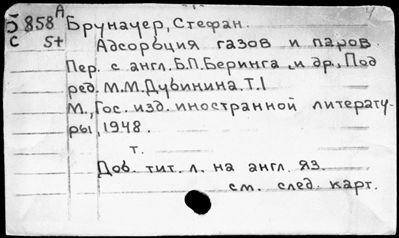 Б 858 А Брунауер, Стефан.
С 5+ Адсорбция газов и паров.
Пер. с англ. Б.П. Беринга и др., Под
ред. М.М. Дубинина. Т.1
М., Гос. изд. иностранной литерату-
ры, 1948.
т.
Доб. тит. л. на англ. яз.
см. след. карт.